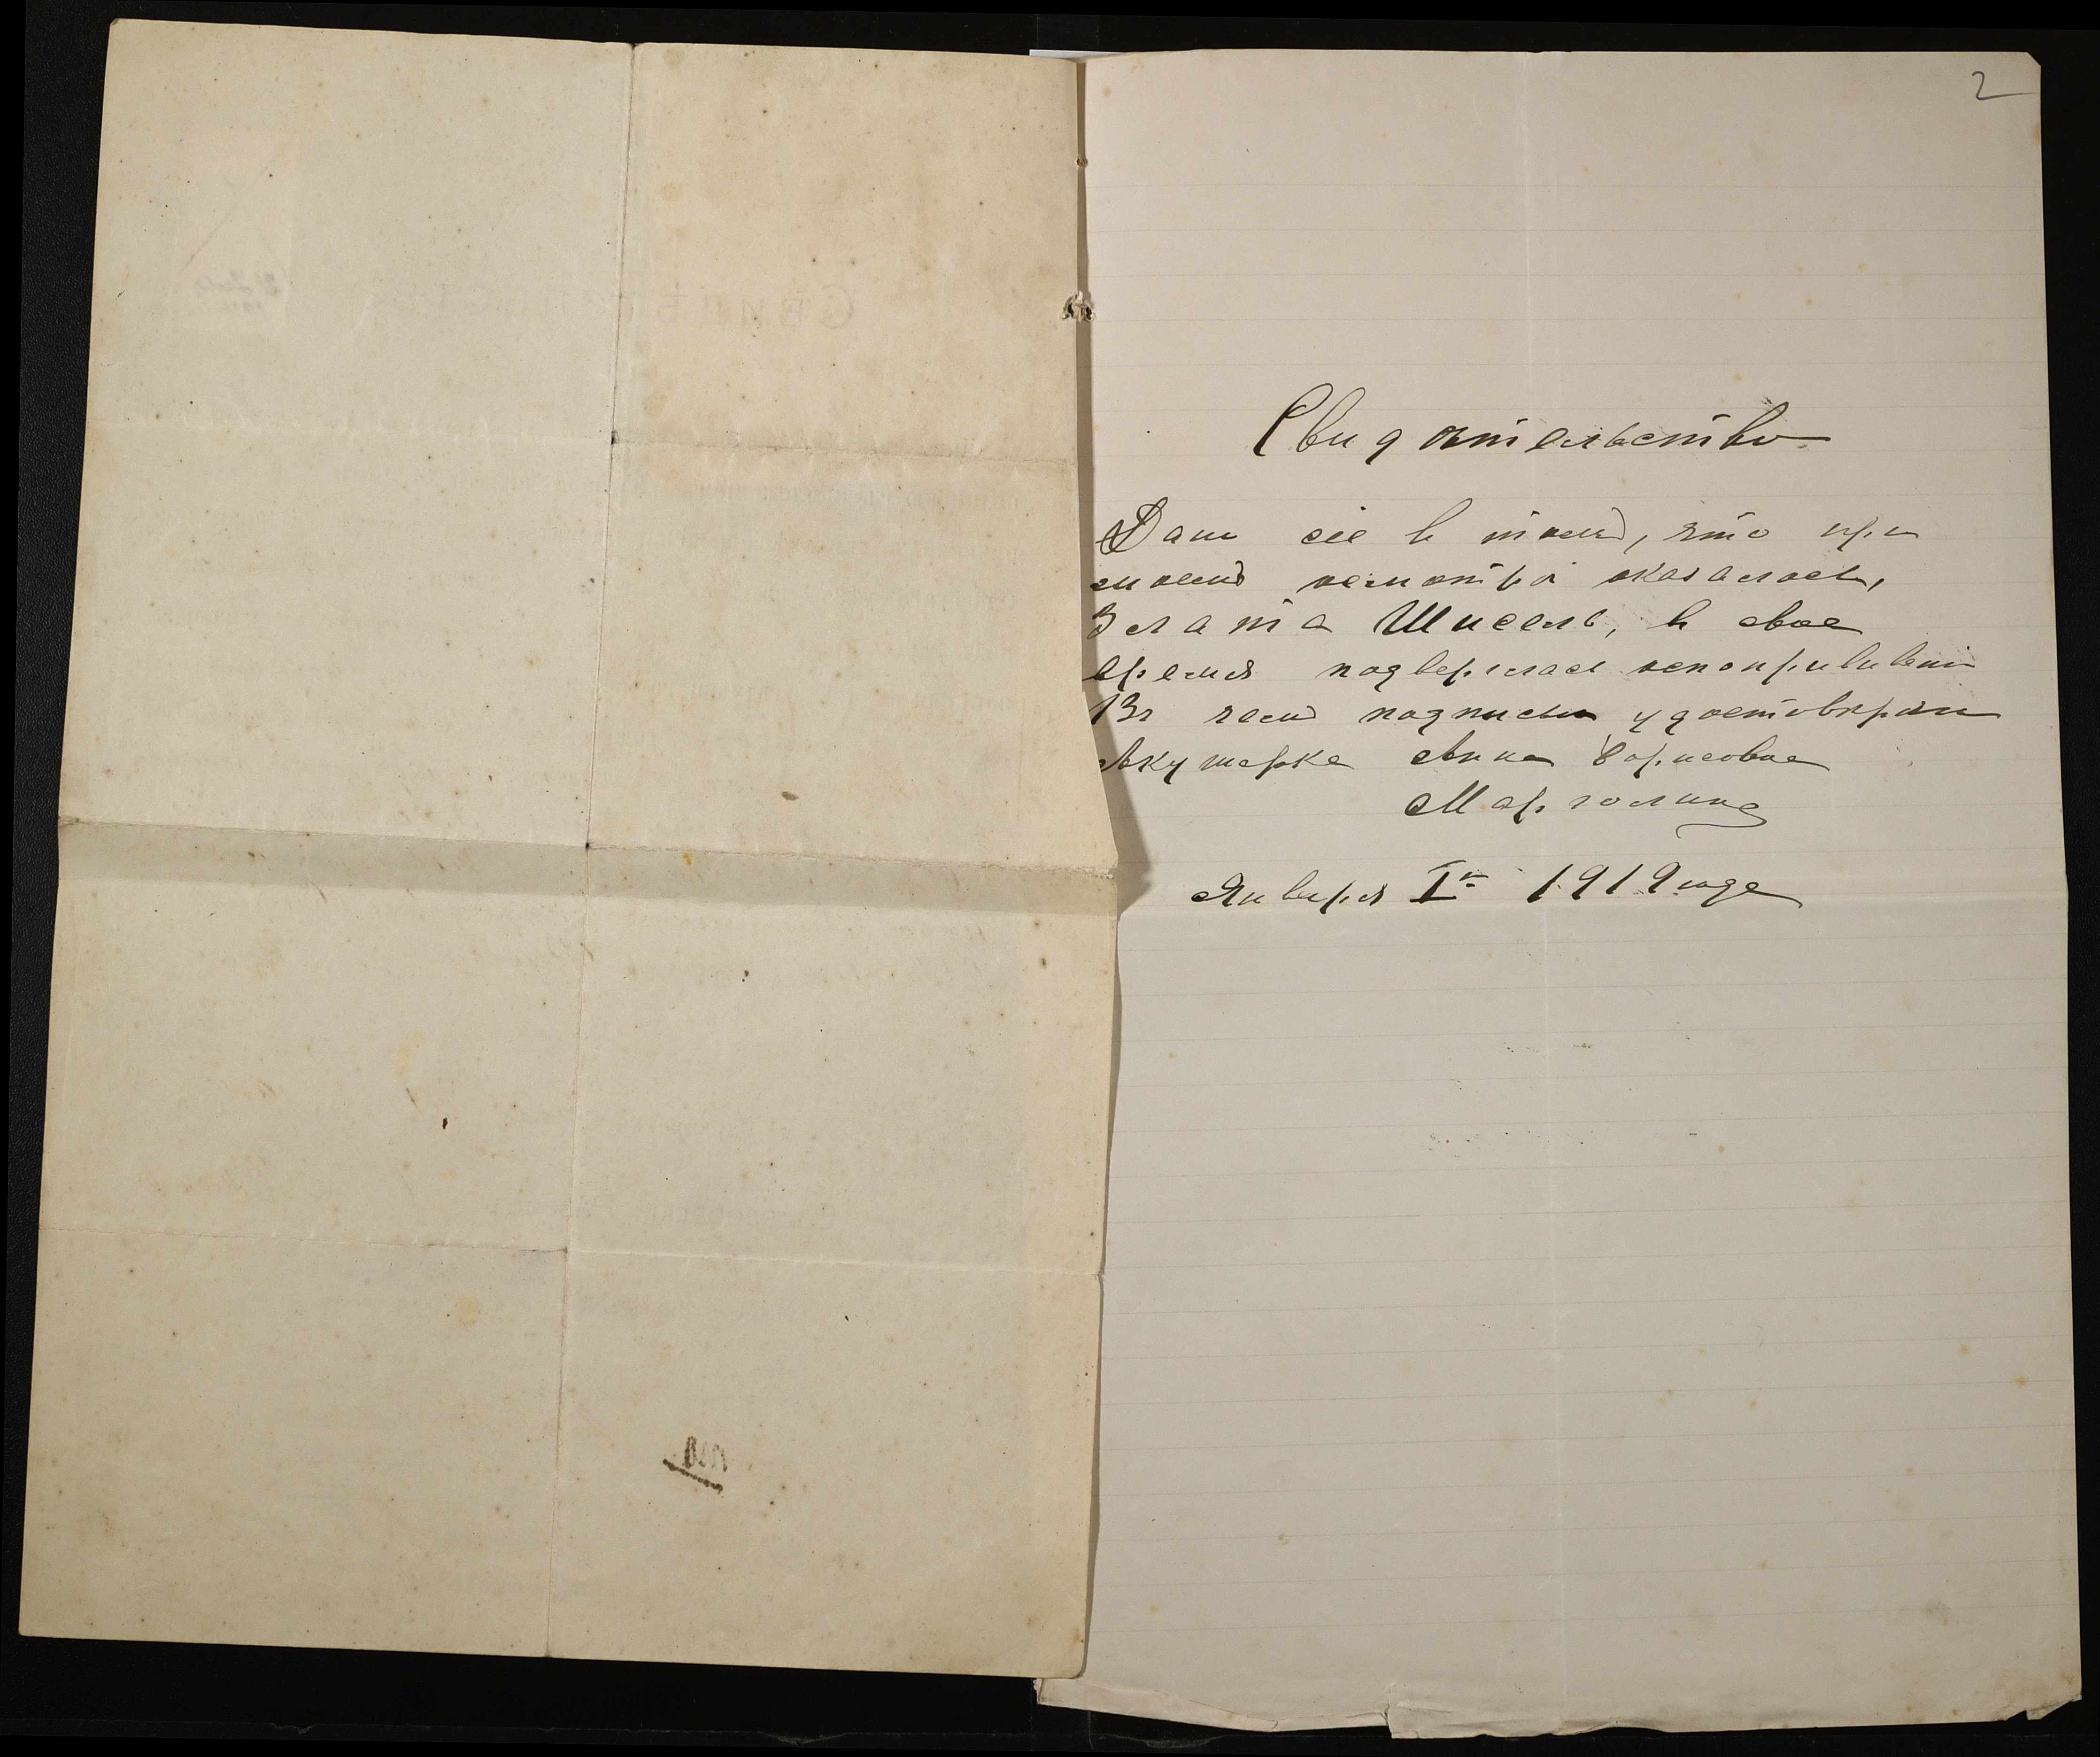 2
Свидѣтельство
Дано сіе въ томъ, что при
моемъ осмотрѣ оказалось,
Злата Шисель, въ свое
время подверглась оспопрививані
Въ чемъ подписью удостовѣряю
Акушерка Анна Борисовна
Марголина
Января I го 1919 года